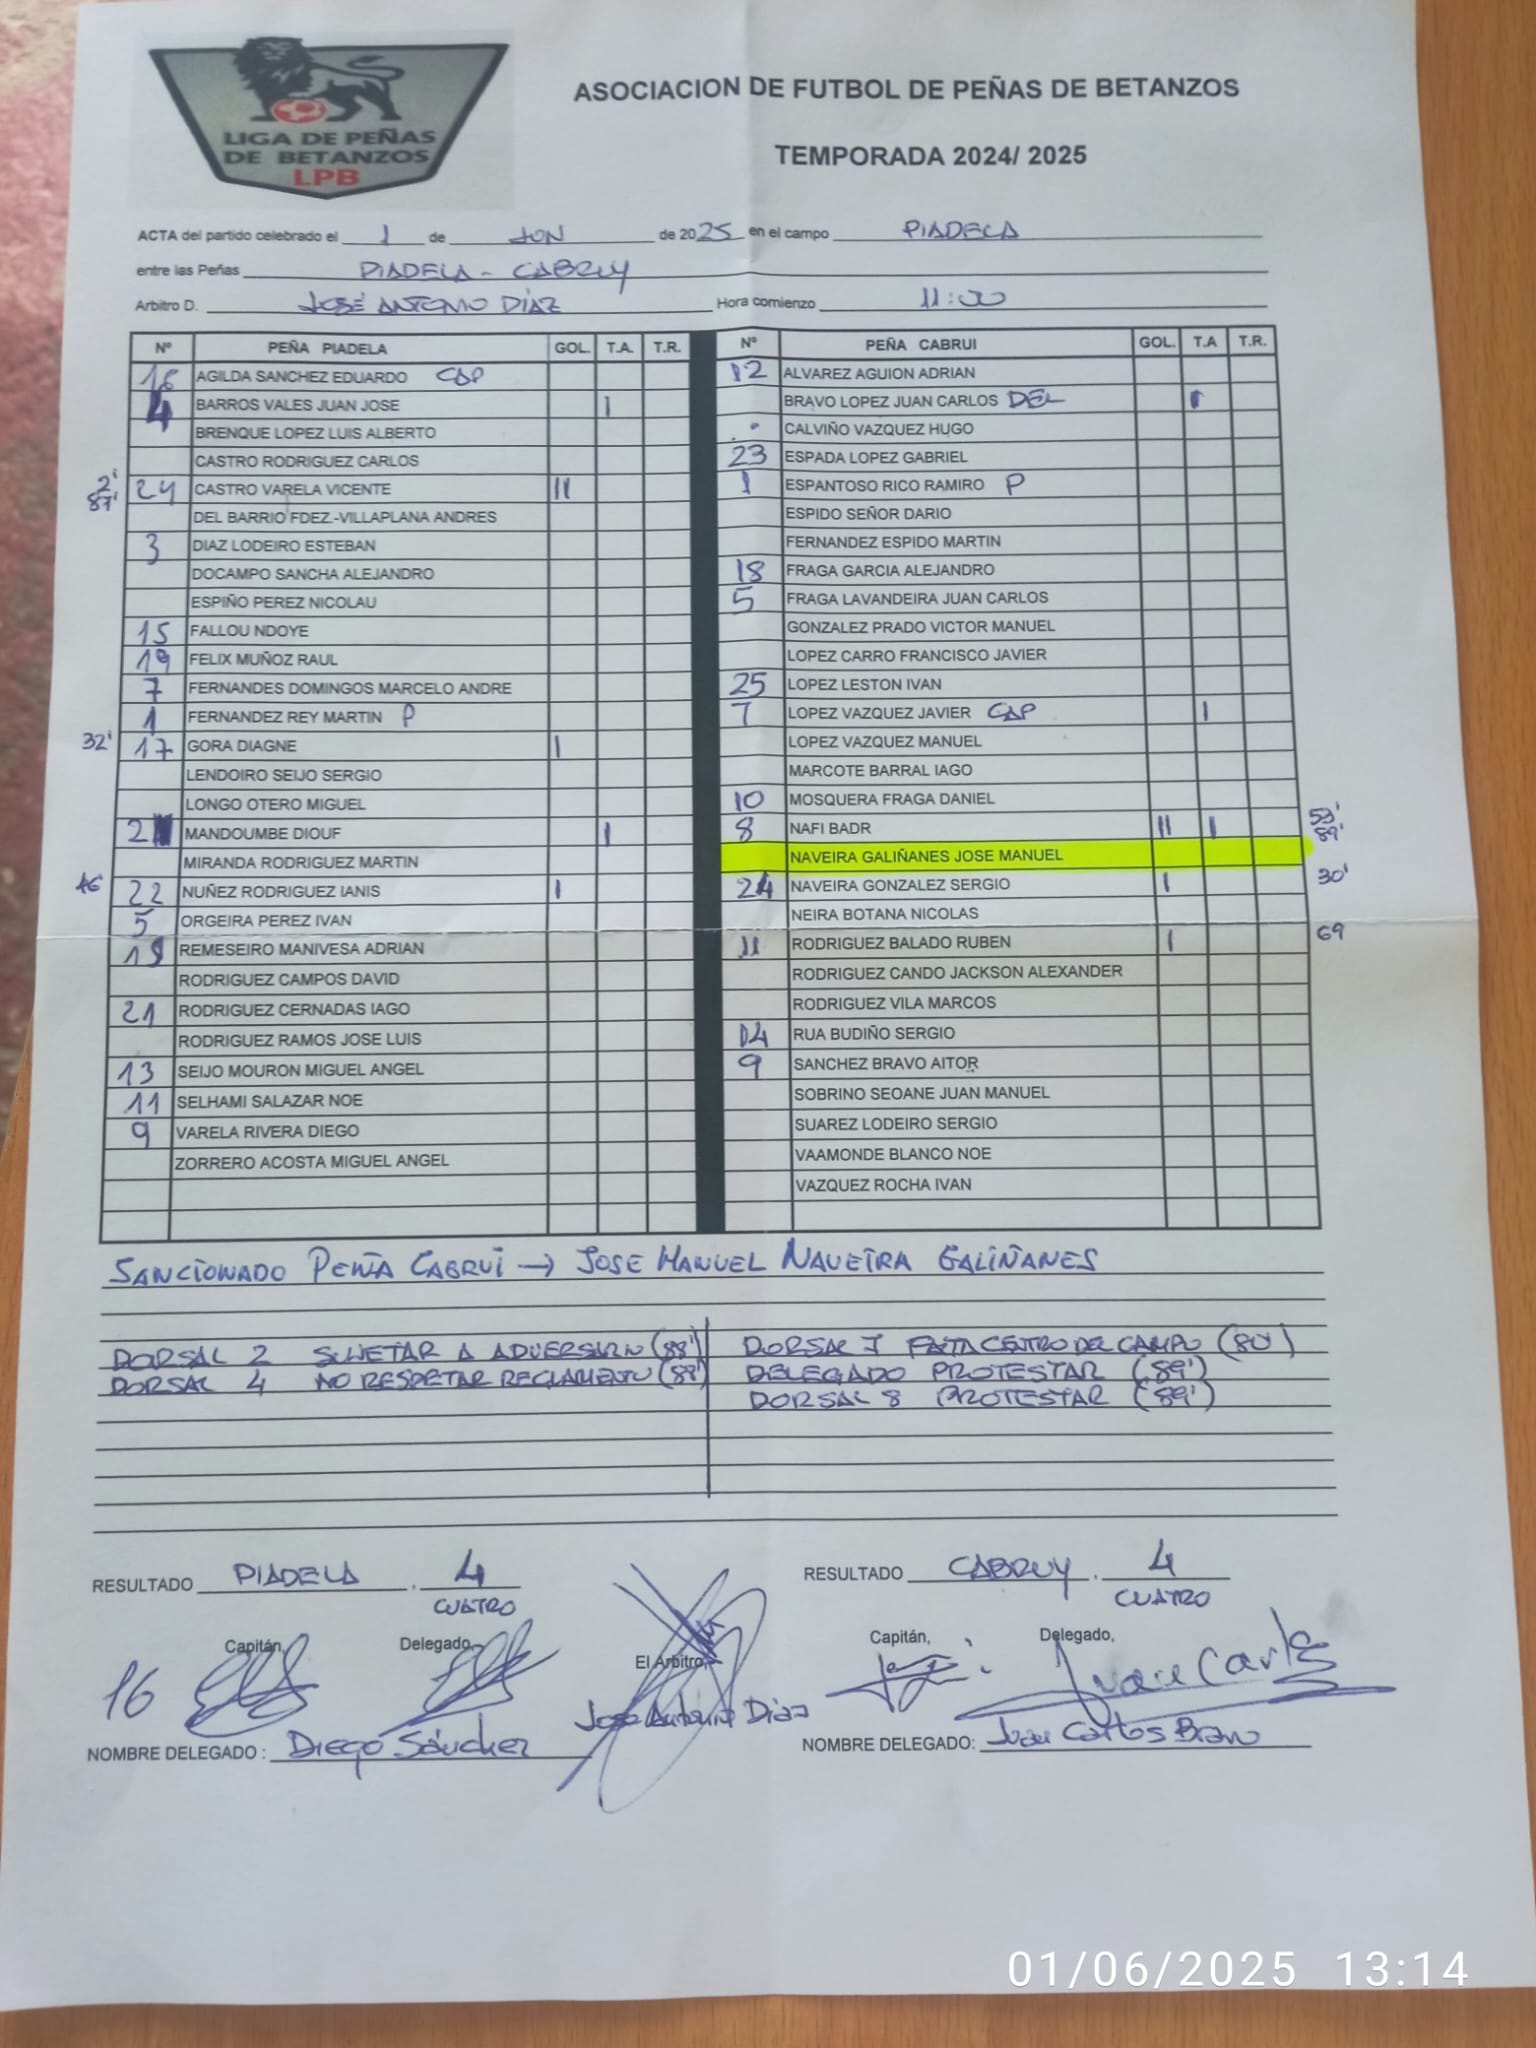 LIGA DE PEÑAS
DE BETANZOS
LPB
ASOCIACION DE FUTBOL DE PEÑAS DE BETANZOS
TEMPORADA 2024/ 2025
ACTA del partido celebrado el 1 de JUN de 2025 en el campo PIADELA
entre las Peñas PIADELA - CABRUY
Arbitro D. JOSÉ ANTONIO DÍAZ Hora comienzo 11:00
Nº PEÑA PIADELA GOL. T.A. T.R. Nº PEÑA CABRUI GOL. T.A T.R.
16 AGILDA SANCHEZ EDUARDO CAP 12 ALVAREZ AGUION ADRIAN
4 BARROS VALES JUAN JOSE I BRAVO LOPEZ JUAN CARLOS DEL I
BRENQUE LOPEZ LUIS ALBERTO CALVIÑO VAZQUEZ HUGO
CASTRO RODRIGUEZ CARLOS 23 ESPADA LOPEZ GABRIEL
2' 87' 24 CASTRO VARELA VICENTE II 1 ESPANTOSO RICO RAMIRO P
DEL BARRIO FDEZ.-VILLAPLANA ANDRES ESPIDO SEÑOR DARIO
3 DIAZ LODEIRO ESTEBAN FERNANDEZ ESPIDO MARTIN
DOCAMPO SANCHA ALEJANDRO 18 FRAGA GARCIA ALEJANDRO
ESPIÑO PEREZ NICOLAU 5 FRAGA LAVANDEIRA JUAN CARLOS
15 FALLOU NDOYE GONZALEZ PRADO VICTOR MANUEL
19 FELIX MUÑOZ RAUL LOPEZ CARRO FRANCISCO JAVIER
7 FERNANDES DOMINGOS MARCELO ANDRE 25 LOPEZ LESTON IVAN
1 FERNANDEZ REY MARTIN P 7 LOPEZ VAZQUEZ JAVIER CAP I
32' 17 GORA DIAGNE I LOPEZ VAZQUEZ MANUEL
LENDOIRO SEIJO SERGIO MARCOTE BARRAL IAGO
LONGO OTERO MIGUEL 10 MOSQUERA FRAGA DANIEL
2 MANDOUMBE DIOUF I 8 NAFI BADR II I 89'
MIRANDA RODRIGUEZ MARTIN NAVEIRA GALIÑANES JOSE MANUEL
46' 22 NUÑEZ RODRIGUEZ IANIS I 24 NAVEIRA GONZALEZ SERGIO I 30'
5 ORGEIRA PEREZ IVAN NEIRA BOTANA NICOLAS
REMESEIRO MANIVESA ADRIAN 11 RODRIGUEZ BALADO RUBEN I 69
RODRIGUEZ CAMPOS DAVID RODRIGUEZ CANDO JACKSON ALEXANDER
21 RODRIGUEZ CERNADAS IAGO RODRIGUEZ VILA MARCOS
RODRIGUEZ RAMOS JOSE LUIS 14 RUA BUDIÑO SERGIO
13 SEIJO MOURON MIGUEL ANGEL 9 SANCHEZ BRAVO AITOR
11 SELHAMI SALAZAR NOE SOBRINO SEOANE JUAN MANUEL
9 VARELA RIVERA DIEGO SUAREZ LODEIRO SERGIO
ZORRERO ACOSTA MIGUEL ANGEL VAAMONDE BLANCO NOE
VAZQUEZ ROCHA IVAN
SANCIONADO PEÑA CABRUI → JOSE MANUEL NAVEIRA GALIÑANES
DORSAL 2 SUJETAR A ADVERSARIO (88') DORSAL 7 FALTA CENTRO DEL CAMPO (80')
DORSAL 4 NO RESPETAR REGLAMENTO DELEGADO PROTESTAR (89')
DORSAL 8 PROTESTAR (89')
RESULTADO PIADELA . 4 RESULTADO CABRUY . 4
CUATRO CUATRO
Capitán, Delegado, El Arbitro, Capitán, Delegado,
16 Jose Antonio Diaz Juan Carlos
NOMBRE DELEGADO : Diego Sánchez NOMBRE DELEGADO: Juan Carlos Bravo
01/06/2025 13:14